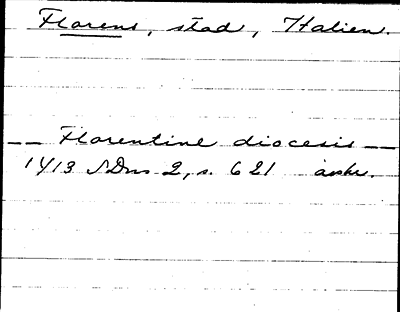 Florens, stad, Italien.
__ Florentine diocesis __
1413 SDns 2, s. 621 avskr.